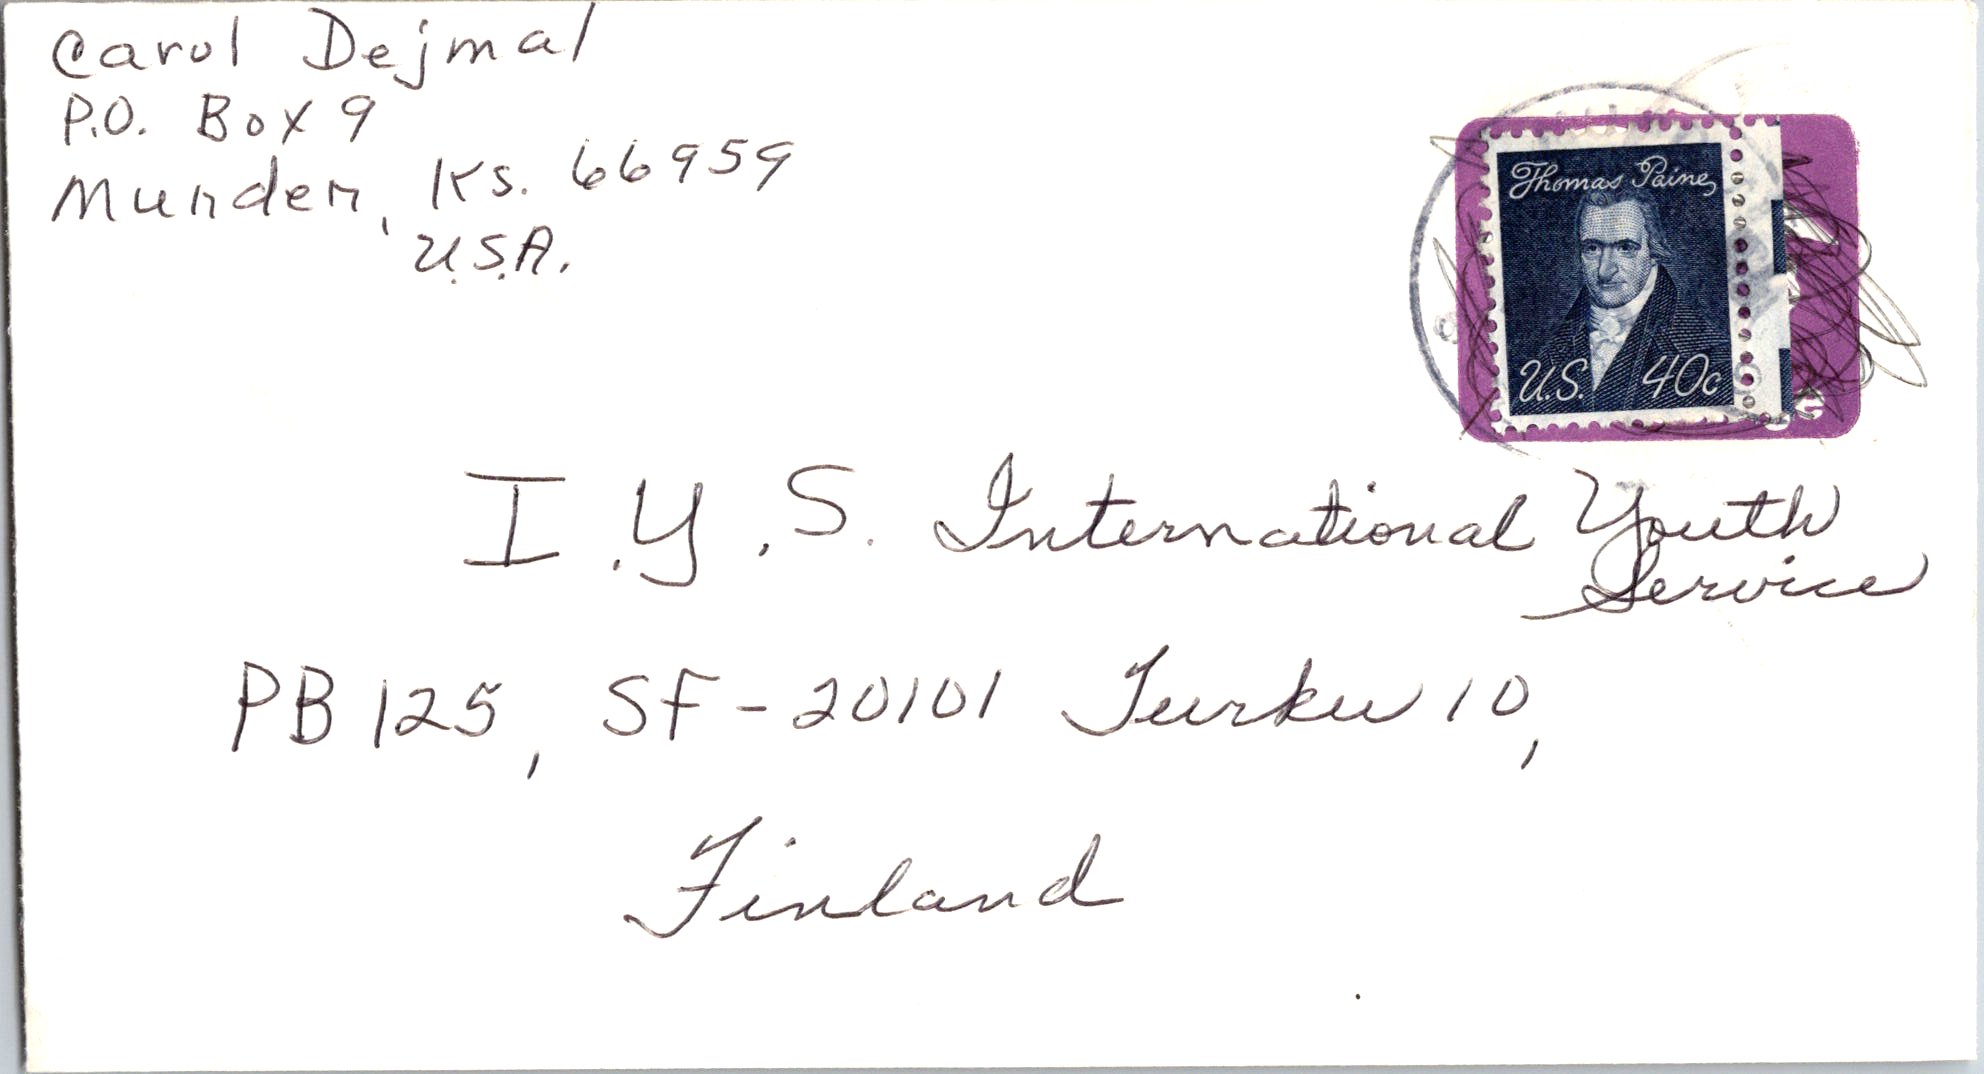 Carol Dejmal
P.O. Box 9
Munden, Ks. 66959
U.S.A.
Thomas Paine
U.S. 40c
I.Y.S. International Youth
Service
PB 125, SF-20101 Turku 10,
Finland